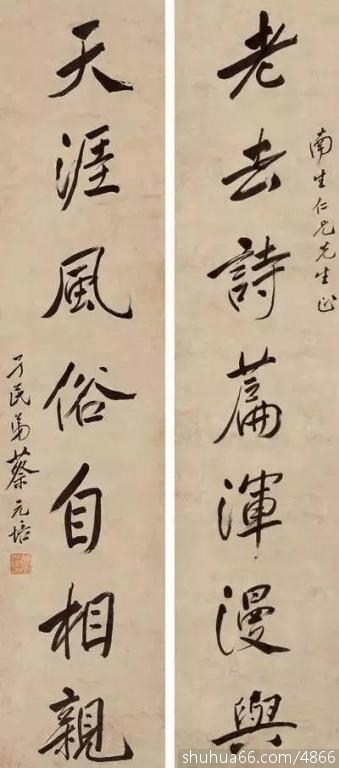 老去詩篇渾漫與
南生仁兄先生正
天涯風俗自相親
孑民弟蔡元培
shuhua66.com/4866